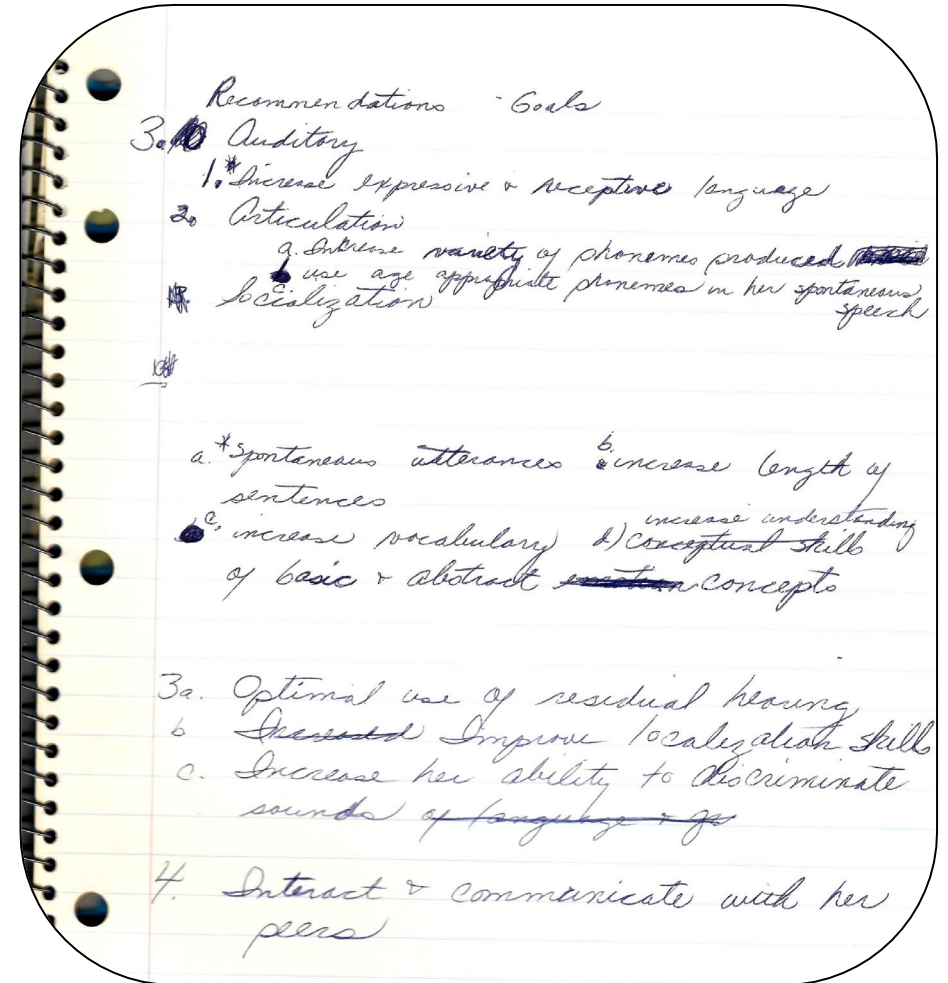 Recommendations - Goals
3. Auditory
1.* Increase expressive & receptive language
2. Articulation
a. Increase variety of phonemes produced
b use age appropriate phonemes in her spontaneous
speech
Socialization
a. *Spontaneous utterances b. increase length of
sentences
c. increase vocabulary d) conceptual skills
increase understanding
of basic & abstract concepts
3a. Optimal use of residual hearing
b Increased Improve localization skills
c. Increase her ability to discriminate
sounds of language & go
4. Interact & communicate with her
peers